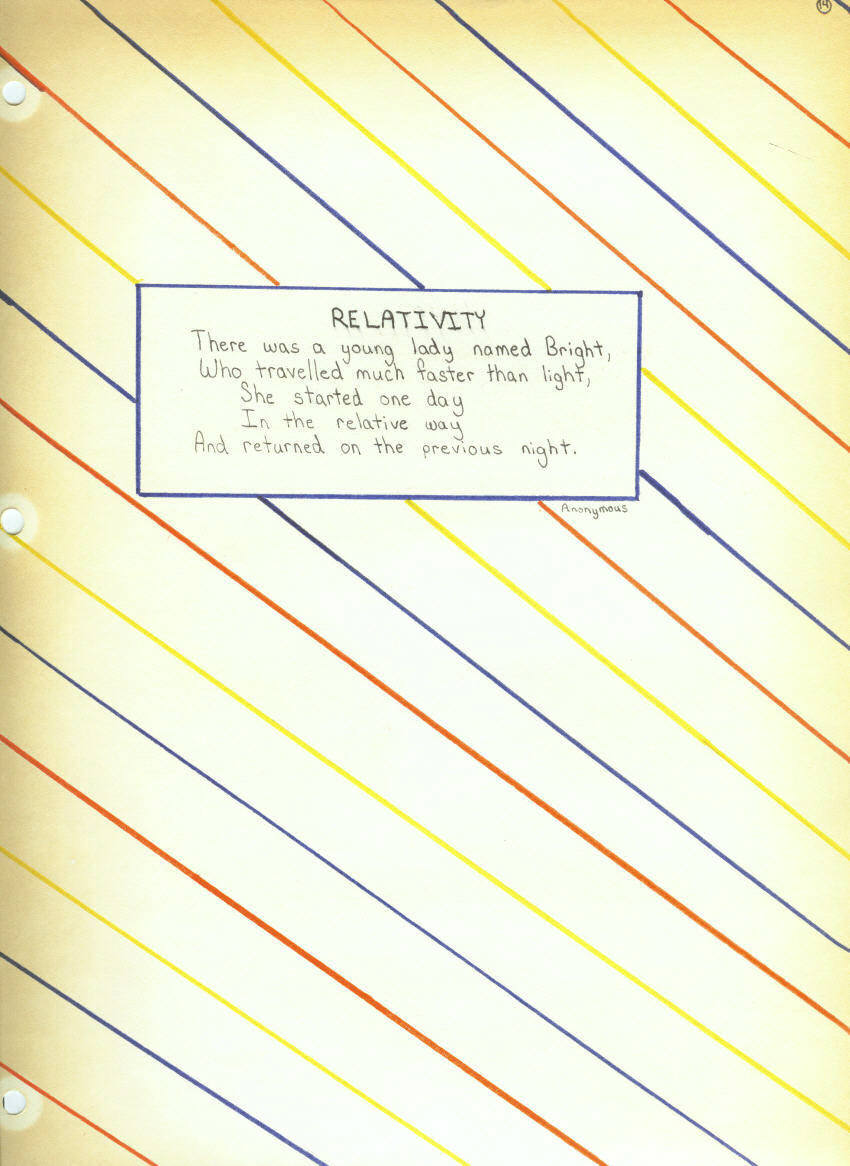 14
RELATIVITY
There was a young lady named Bright,
Who travelled much faster than light,
She started one day
In the relative way
And returned on the previous night.
Anonymous